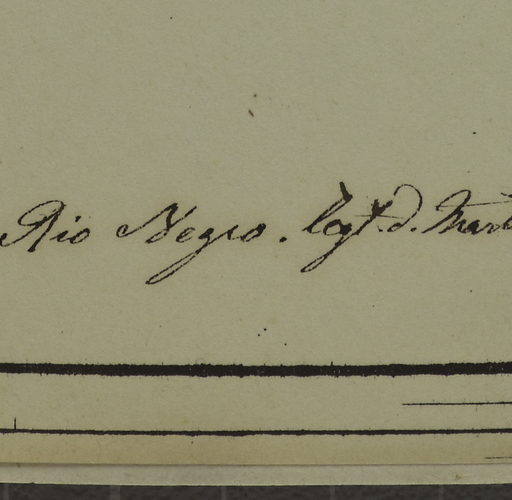 Rio Negro. legt. d. Mart